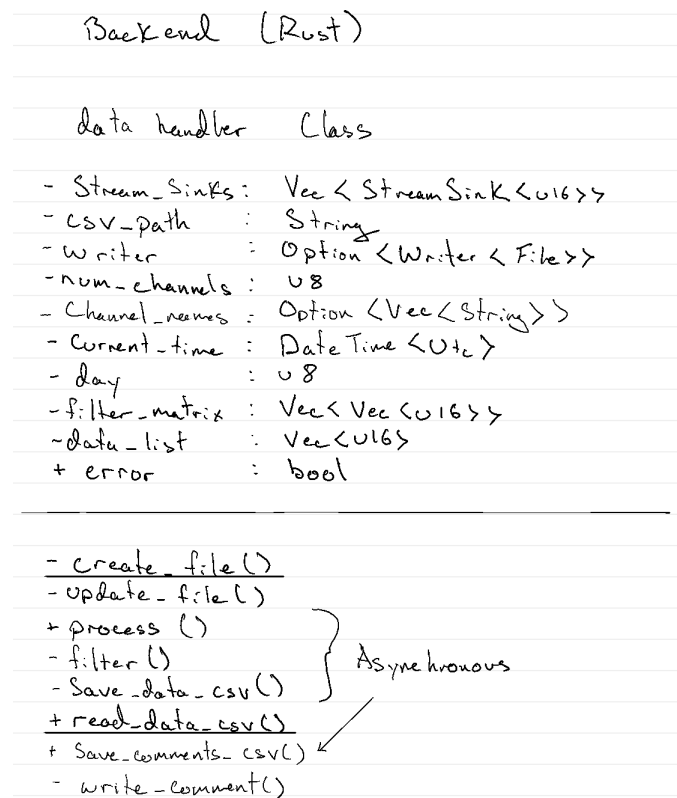 Backend (Rust)
data handler Class
- Stream_Sinks : Vec < StreamSink <u16>>
- csv_path : String
- writer : Option <Writer < File >>
- num_channels : u8
- Channel_names : Option <Vec < String > >
- Current_time : DateTime <Utc>
- day : u8
- filter_matrix : Vec< Vec <u16>>
- data_list : Vec<u16>
+ error : bool
- create_file()
- update_file()
+ process ()
- filter()
- Save_data_csv()
Asynchronous
+ read_data_csv()
+ Save_comments_csv()
- write_comment()